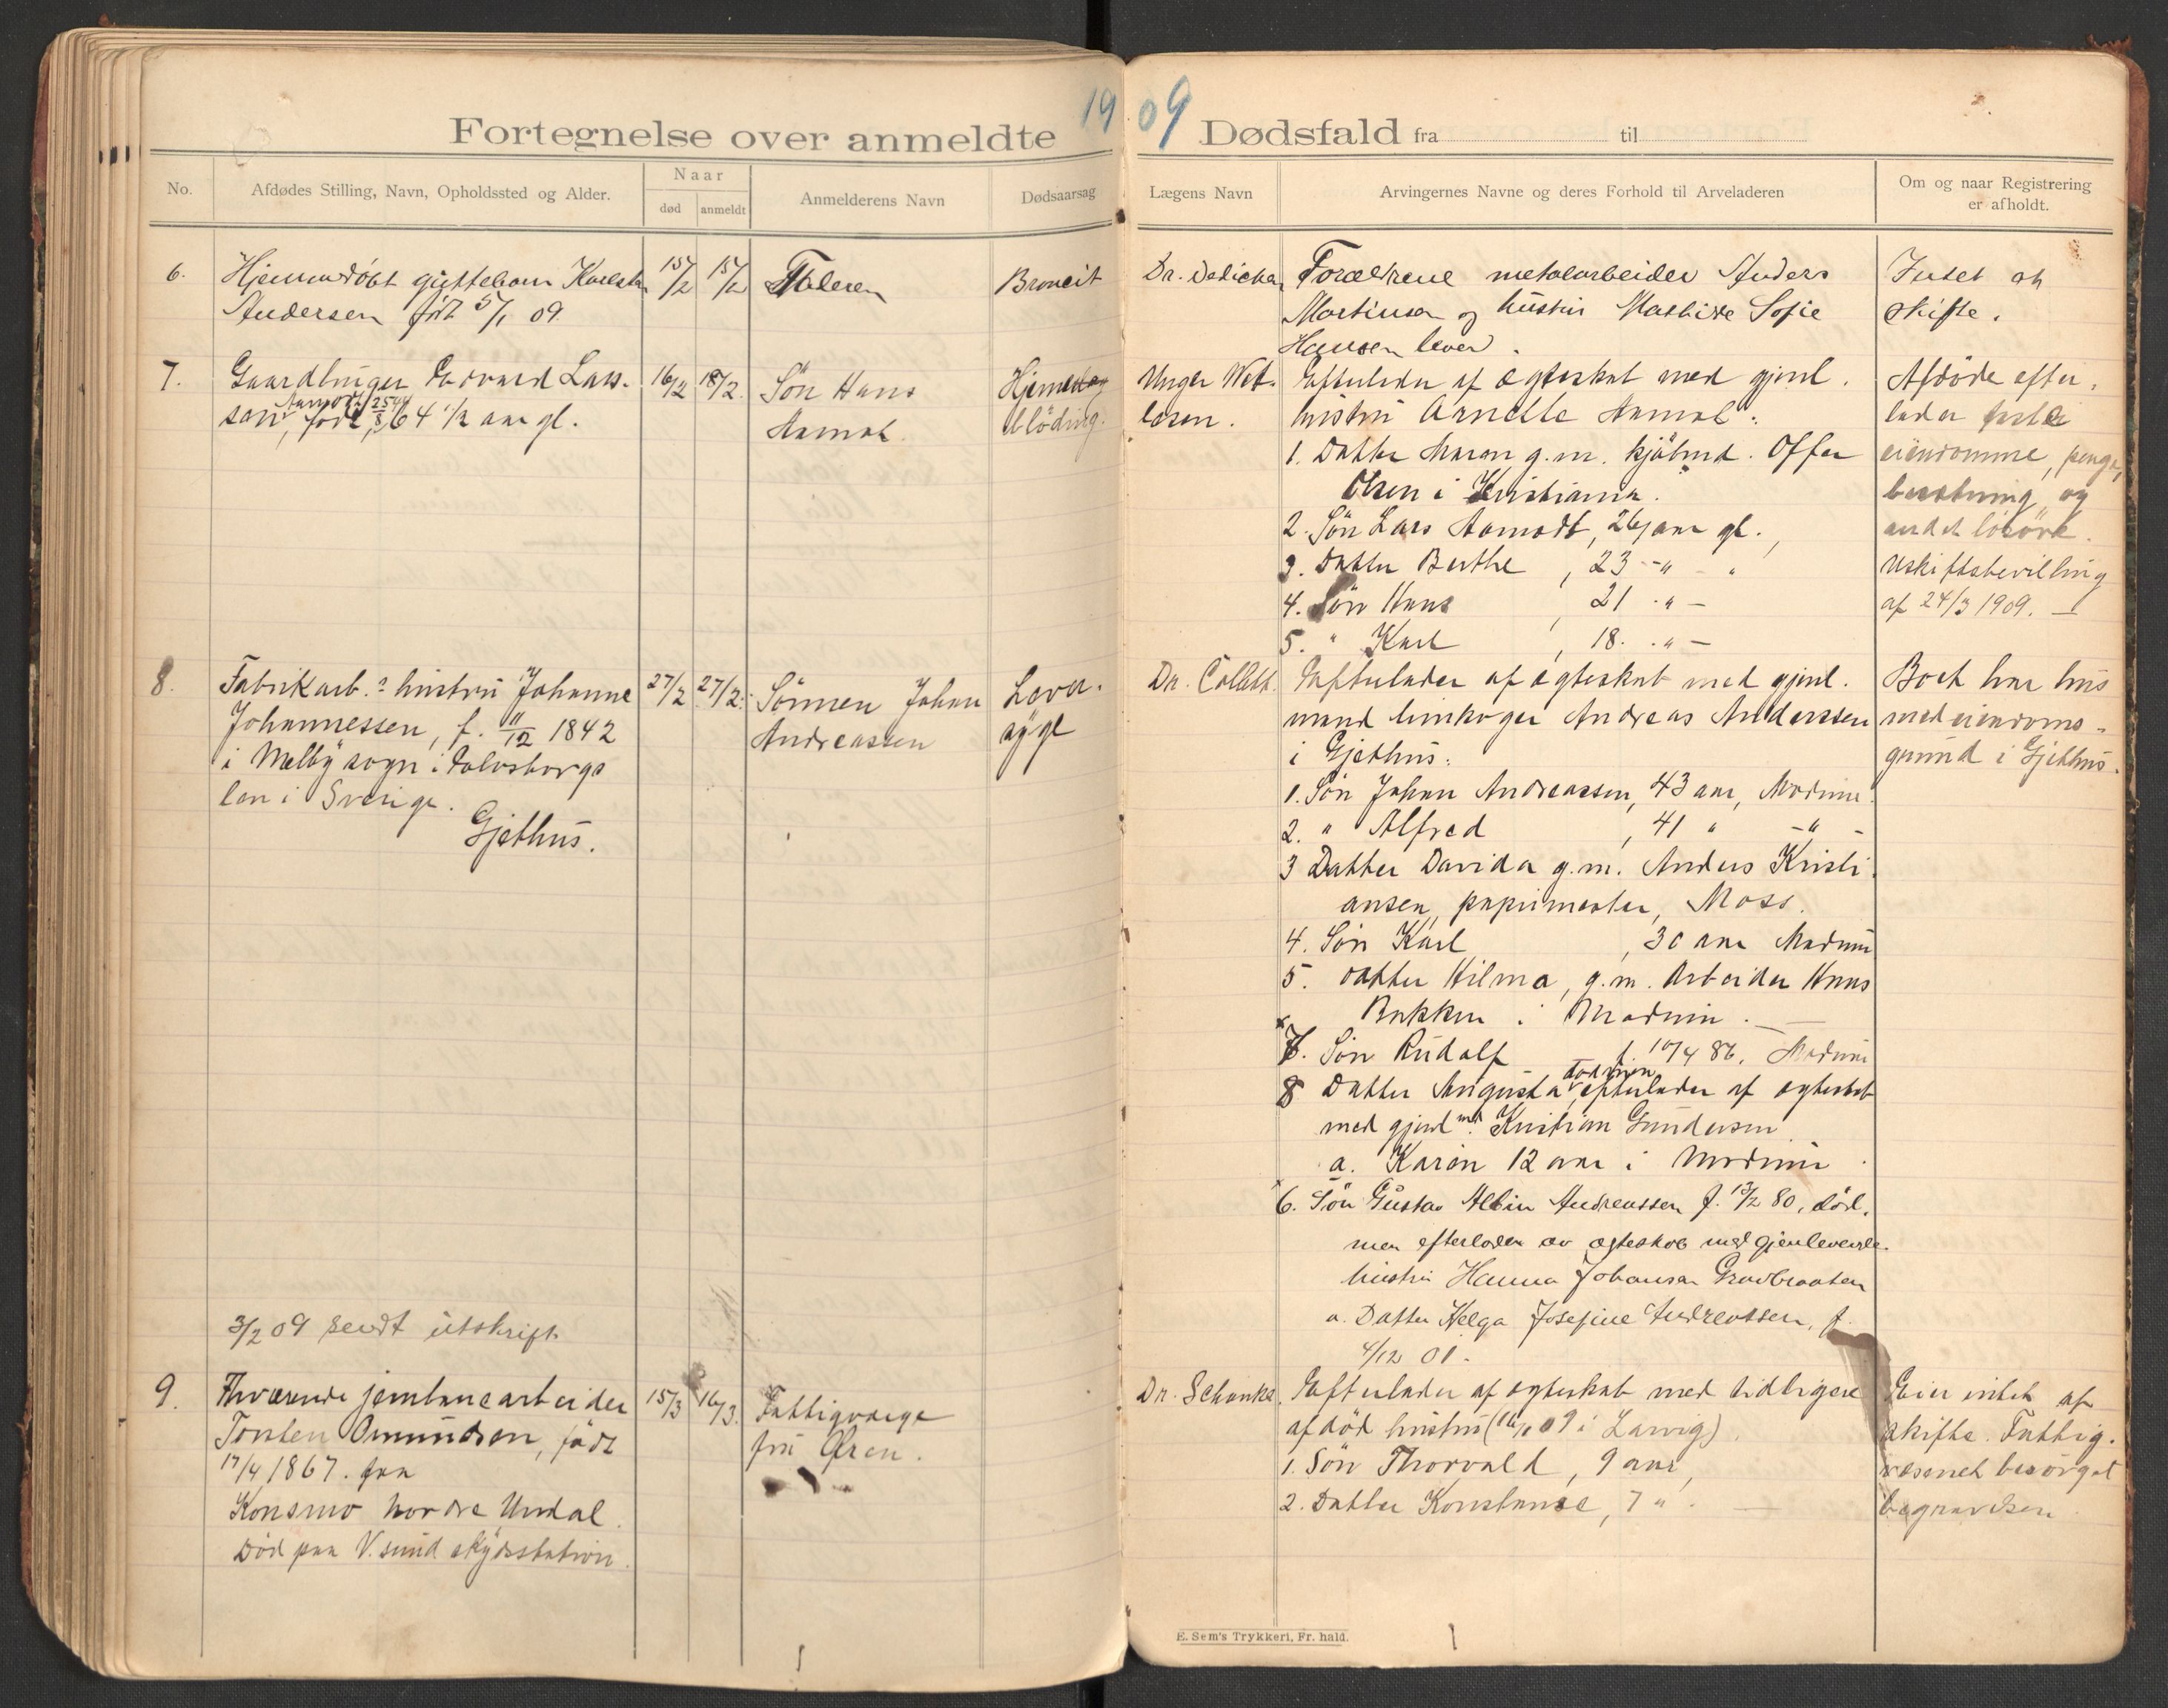 1909
Fortegnelse over anmeldte Dødsfald fra til
No.
Afdødes Stilling, Navn, Opholdssted og Alder.
Naar
død
anmeldt
Anmelderens Navn
Dødsaarsag
Lægens Navn
Arvingernes Navne og deres Forhold til Arveladeren
Om og naar Registrering
er afholdt.
6.
Hjemmedøbt guttebarn
Andersen født 5/1 09
15/2
15/2
Faderen
Broncit
Dr. Dedichen
Forældrene metalarbeider Anders
Martinsen og hustru Mathilde Sofie
Hansen lever.
Intet at
skifte.
7.
Gaardbruger Edvard Lars-
sen Aamodt, født 25/8 44, 64 1/2 aar gl.
16/2
18/2.
Søn Hans
Aamot.
Hjerne
blødnig.
Unger Vet-
lesen.
Efterlader af ægteskab med gjenl.
hustru Anette Aamot:
1. Datter Maren g.m. kjøbmd. Offer
Olsen i Kristiania.
2. Søn Lars Aamodt, 26 aar gl.,
3. Datter Berthe, 23 -"- "
4. Søn Hans, 21 -"-
5. " Karl, 18. -"-
Afdøde efter-
lader faste
eiendomme, penge,
besætning og
andet løsøre.
Uskiftebevilling
af 24/3 1909. —
8.
Fabrikarb.s hustru Johanne
Johannessen, f. 11/12 1842
i Melby sogn i Elvsborgs
len i Sverige.
Gjethus.
27/2
27/2.
Sønnen Johan
Andreassen
Lever-
syge
Dr. Collett.
Efterlader af ægteskab med gjenl.
mand limkoger Andreas Anderssen
i Gjethus:
1. Søn Johan Andreassen, 43 aar, Modum.
2. " Alfred, 41 " -"-
3 Datter Davida g.m. Anders Kristi-
ansen, papirmester, Moss.
4. Søn Karl, 30 aar Modum
5. Datter Hilma, g.m. Arbeider Hans
Bakken i Modum. —
7. Søn Rudolf f. 10/4 86. Modum
8 Datter Augusta død men efterlader af ægteskab
med gjenl md. Kristian Gundersen
a. Karen 12 aar i Modum.
6. Søn Gustav Albin Andreassen f. 13/2 80, død,
men efterlader av ægteskab med gjenlevende
hustru Hanna Johansen Gravbraaten
a. Datter Helga Josefine Andreassen, f.
4/12 01.
Boet har hus
med eiendoms-
grund i Gjethus.
3/2 09 sendt utskrift
9.
Fhværende jernbanearbeider
Torsten Omundsen, født
17/4 1867. fra
Konsmo Nordre Undal.
Død paa V.sund skydsstation.
15/3
16/3.
Fattigværge
fru Øren.
Dr. Schanke.
Efterlader af ægteskab med tidligere
afdød hustru (16/1 09 i Larvig).
1. Søn Thorvald, 9 aar,
2. Datter Konstanse, 7 ". —
Eier intet at
skifte. Fattig-
væsenet besørget
begravelsen
E. Sem's Trykkeri, Fr. hald.